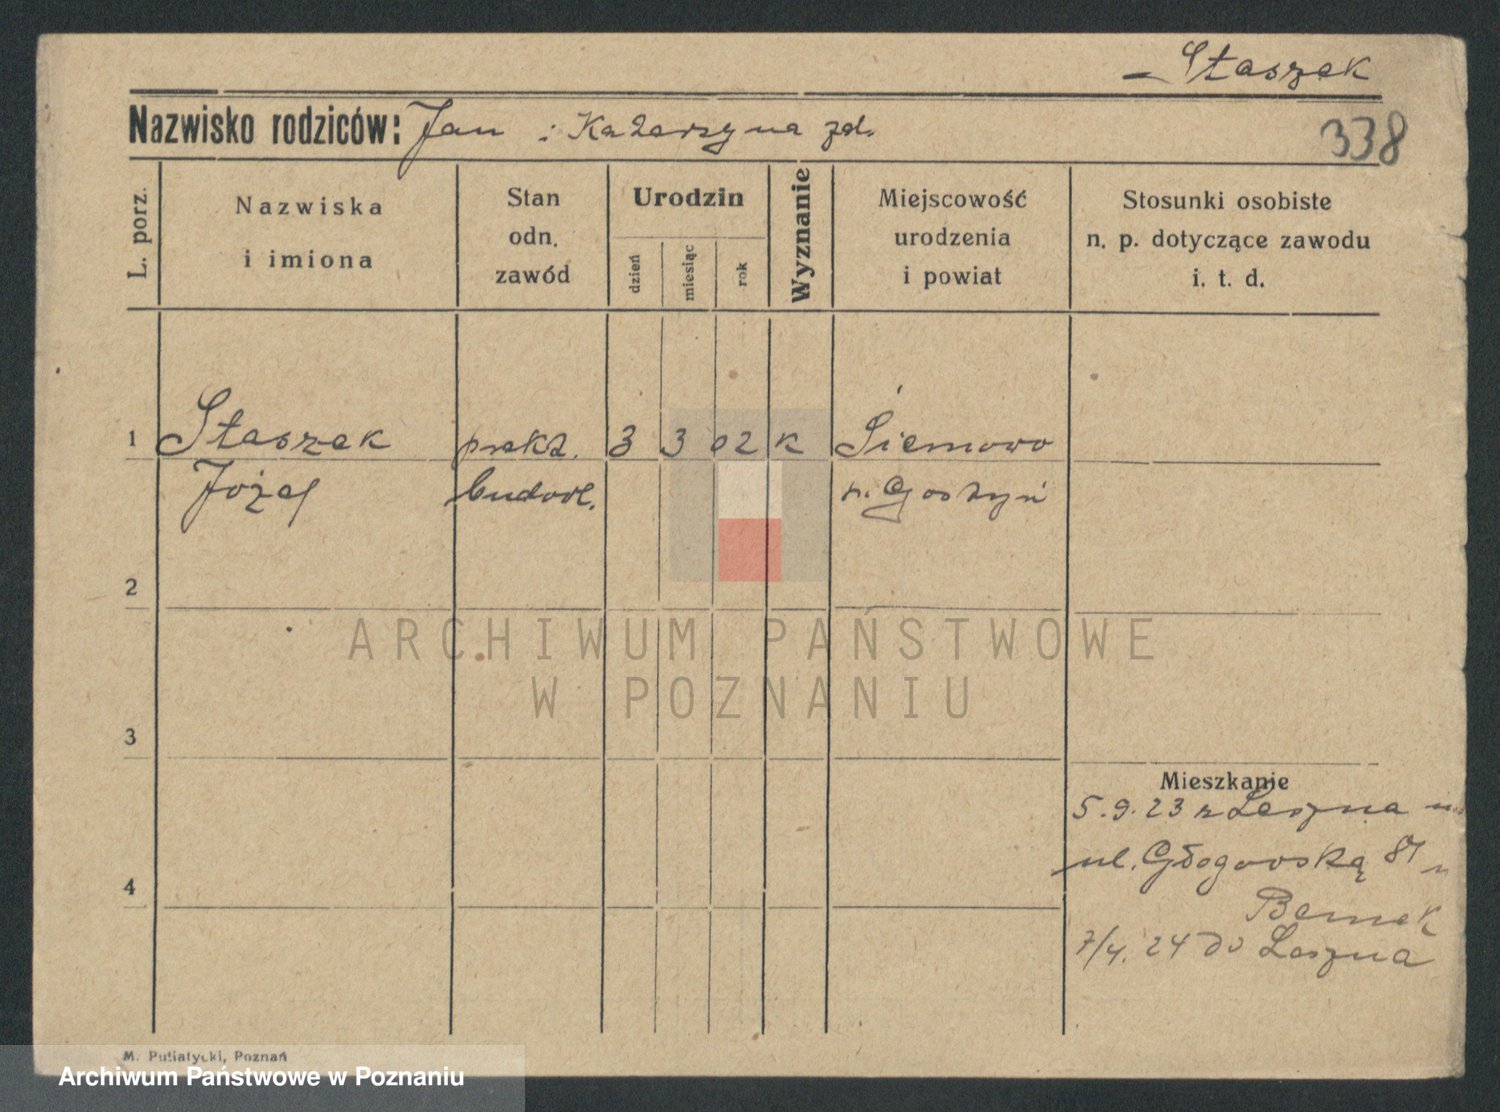 – Staszek
Nazwisko rodziców: Jan i Katarzyna zd.
338
L. porz.
Nazwiska
i imiona
Stan
odn.
zawód
Urodzin
dzień
miesiąc
rok
Wyznanie
Miejscowość
urodzenia
i powiat
Stosunki osobiste
n. p. dotyczące zawodu
i. t. d.
1 Staszek prakt. 3 3 02 k Siemowo
Józef budowl. p. Gostyń
2
ARCHIWUM PAŃSTWOWE
W POZNANIU
3
Mieszkanie
5.9.23 z Leszna
ul. Głogowską 87
4
7/4. 24 do Leszna
M. Putiatycki, Poznań
Archiwum Państwowe w Poznaniu